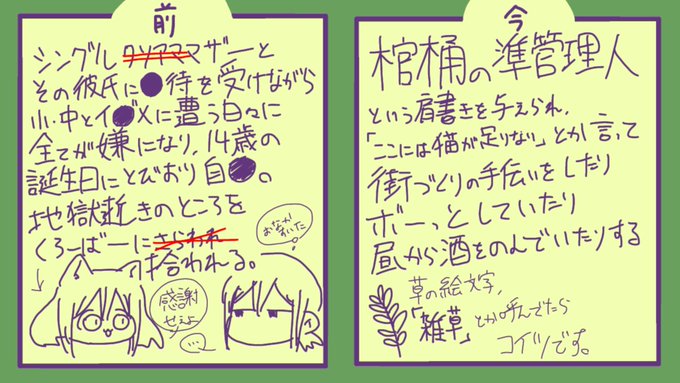 前
シングルクソアママザーと
その彼氏に●待を受けながら
小・中とイ●メに遭う日々に
全てが嫌になり、14歳の
誕生日にとびおり自●。
地獄逝きのところを
くろーばーにさらわれ
拾われる。
おなかすいた
感謝
せぇよ
…
今
棺桶の準管理人
という肩書きを与えられ、
「ここには猫が足りない」とか言って
街づくりの手伝いをしたり
ボーっとしていたり
昼から酒をのんでいたりする
草の絵文字、
「雑草」とか呼んでたら
コイツです。